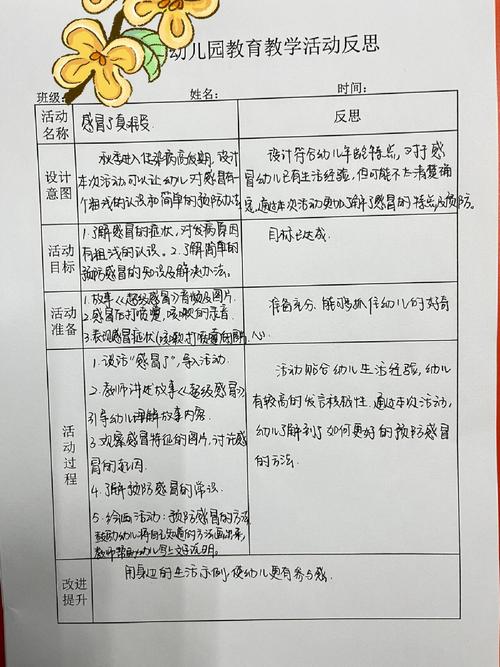 幼儿园教育教学活动反思
班级: 姓名: 时间:
活动名称 感冒了真难受 反思
设计意图
秋季进入传染病高发期,设计
本次活动可以让幼儿对感冒有一
个粗浅的认识和简单的预防办法
设计符合幼儿年龄特点,对于感
冒幼儿已有生活经验,但可能不太清楚确
定,通过本次活动更加了解了感冒的特点及预防。
活动目标
1.了解感冒的症状,对发病原因
有粗浅的认识。2.了解简单的
预防感冒的知识及解决办法。
目标已达成.
活动准备
1.故事《超级感冒》音频及图片.
2.感冒后打喷嚏,咳嗽的录音.
3.表现感冒症状(咳嗽,打喷嚏的图片
准备充分、能够抓住幼儿的好奇
心
活动过程
1.谈话“感冒了”,导入活动.
2.教师讲述故事《超级感冒》
引导幼儿理解故事内容.
3.观察感冒特征的图片,讨论感
冒的原因.
4.了解预防感冒的常识.
5.绘画活动:预防感冒的方法
鼓励幼儿将自己知道的方法画出来,
教师帮助幼儿写上文字说明。
活动贴合幼儿生活经验,幼儿
有较高的发言积极性.通过本次活动,
幼儿了解到了如何更好的预防感冒
的方法.
改进提升
用身边的生活示例,使幼儿更有参与感.